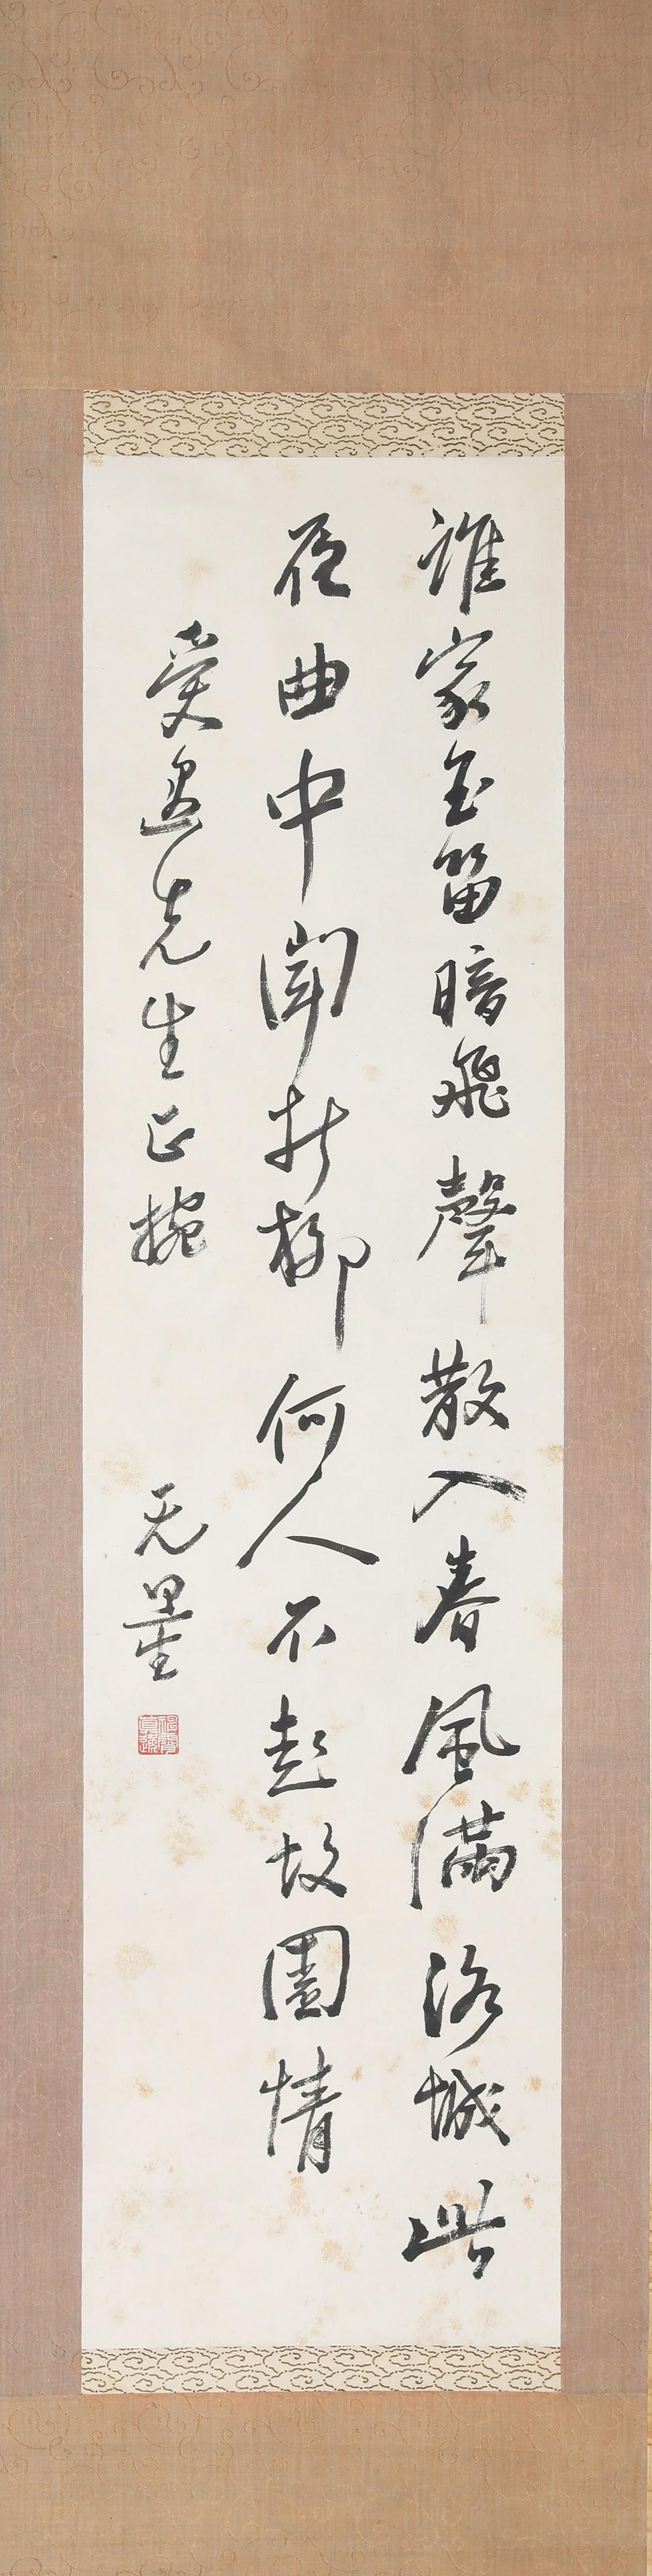 誰家玉笛暗飛聲散入春風滿洛城此
夜曲中聞折柳何人不起故園情
先生正捥
无量